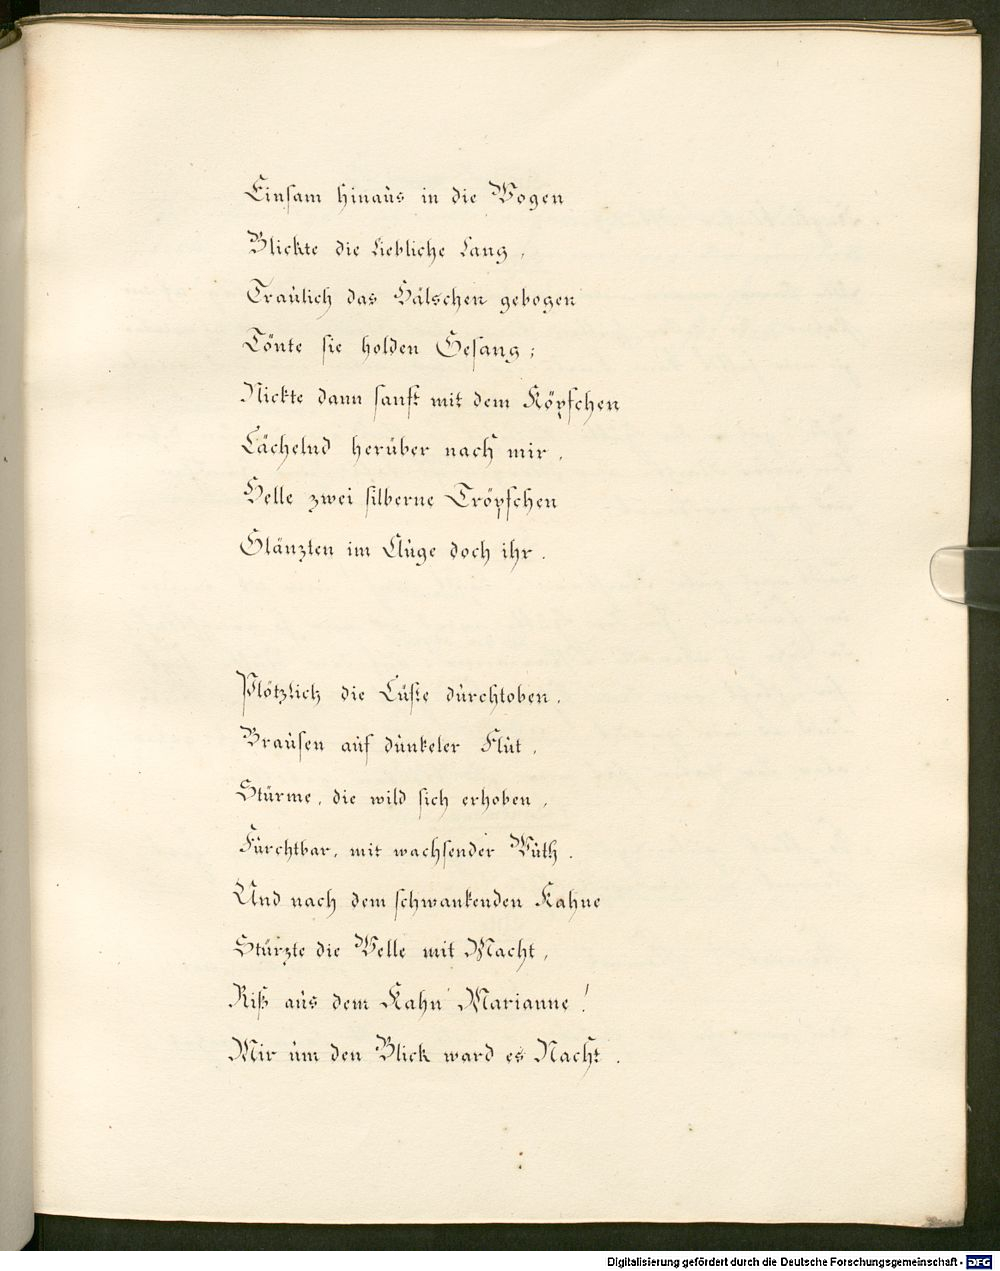 Einsam hinaus in die Wogen
Blickte die Liebliche lang,
Traulich das Hälschen gebogen
Tönte sie holden Gesang;
Nickte dann sanft mit dem Köpfchen
Lächelnd herüber nach mir,
Helle zwei silberne Tröpfchen
Glänzten im Auge doch ihr.
Plötzlich die Lüfte durchtoben,
Brausen auf dunkeler Flut,
Stürme, die wild sich erhoben,
Furchtbar, mit wachsender Wuth.
Und nach dem schwankenden Kahne
Stürzte die Welle mit Macht,
Riß aus dem Kahn Marianne!
Mir um den Blick ward es Nacht.
Digitalisierung gefördert durch die Deutsche Forschungsgemeinschaft - DFG